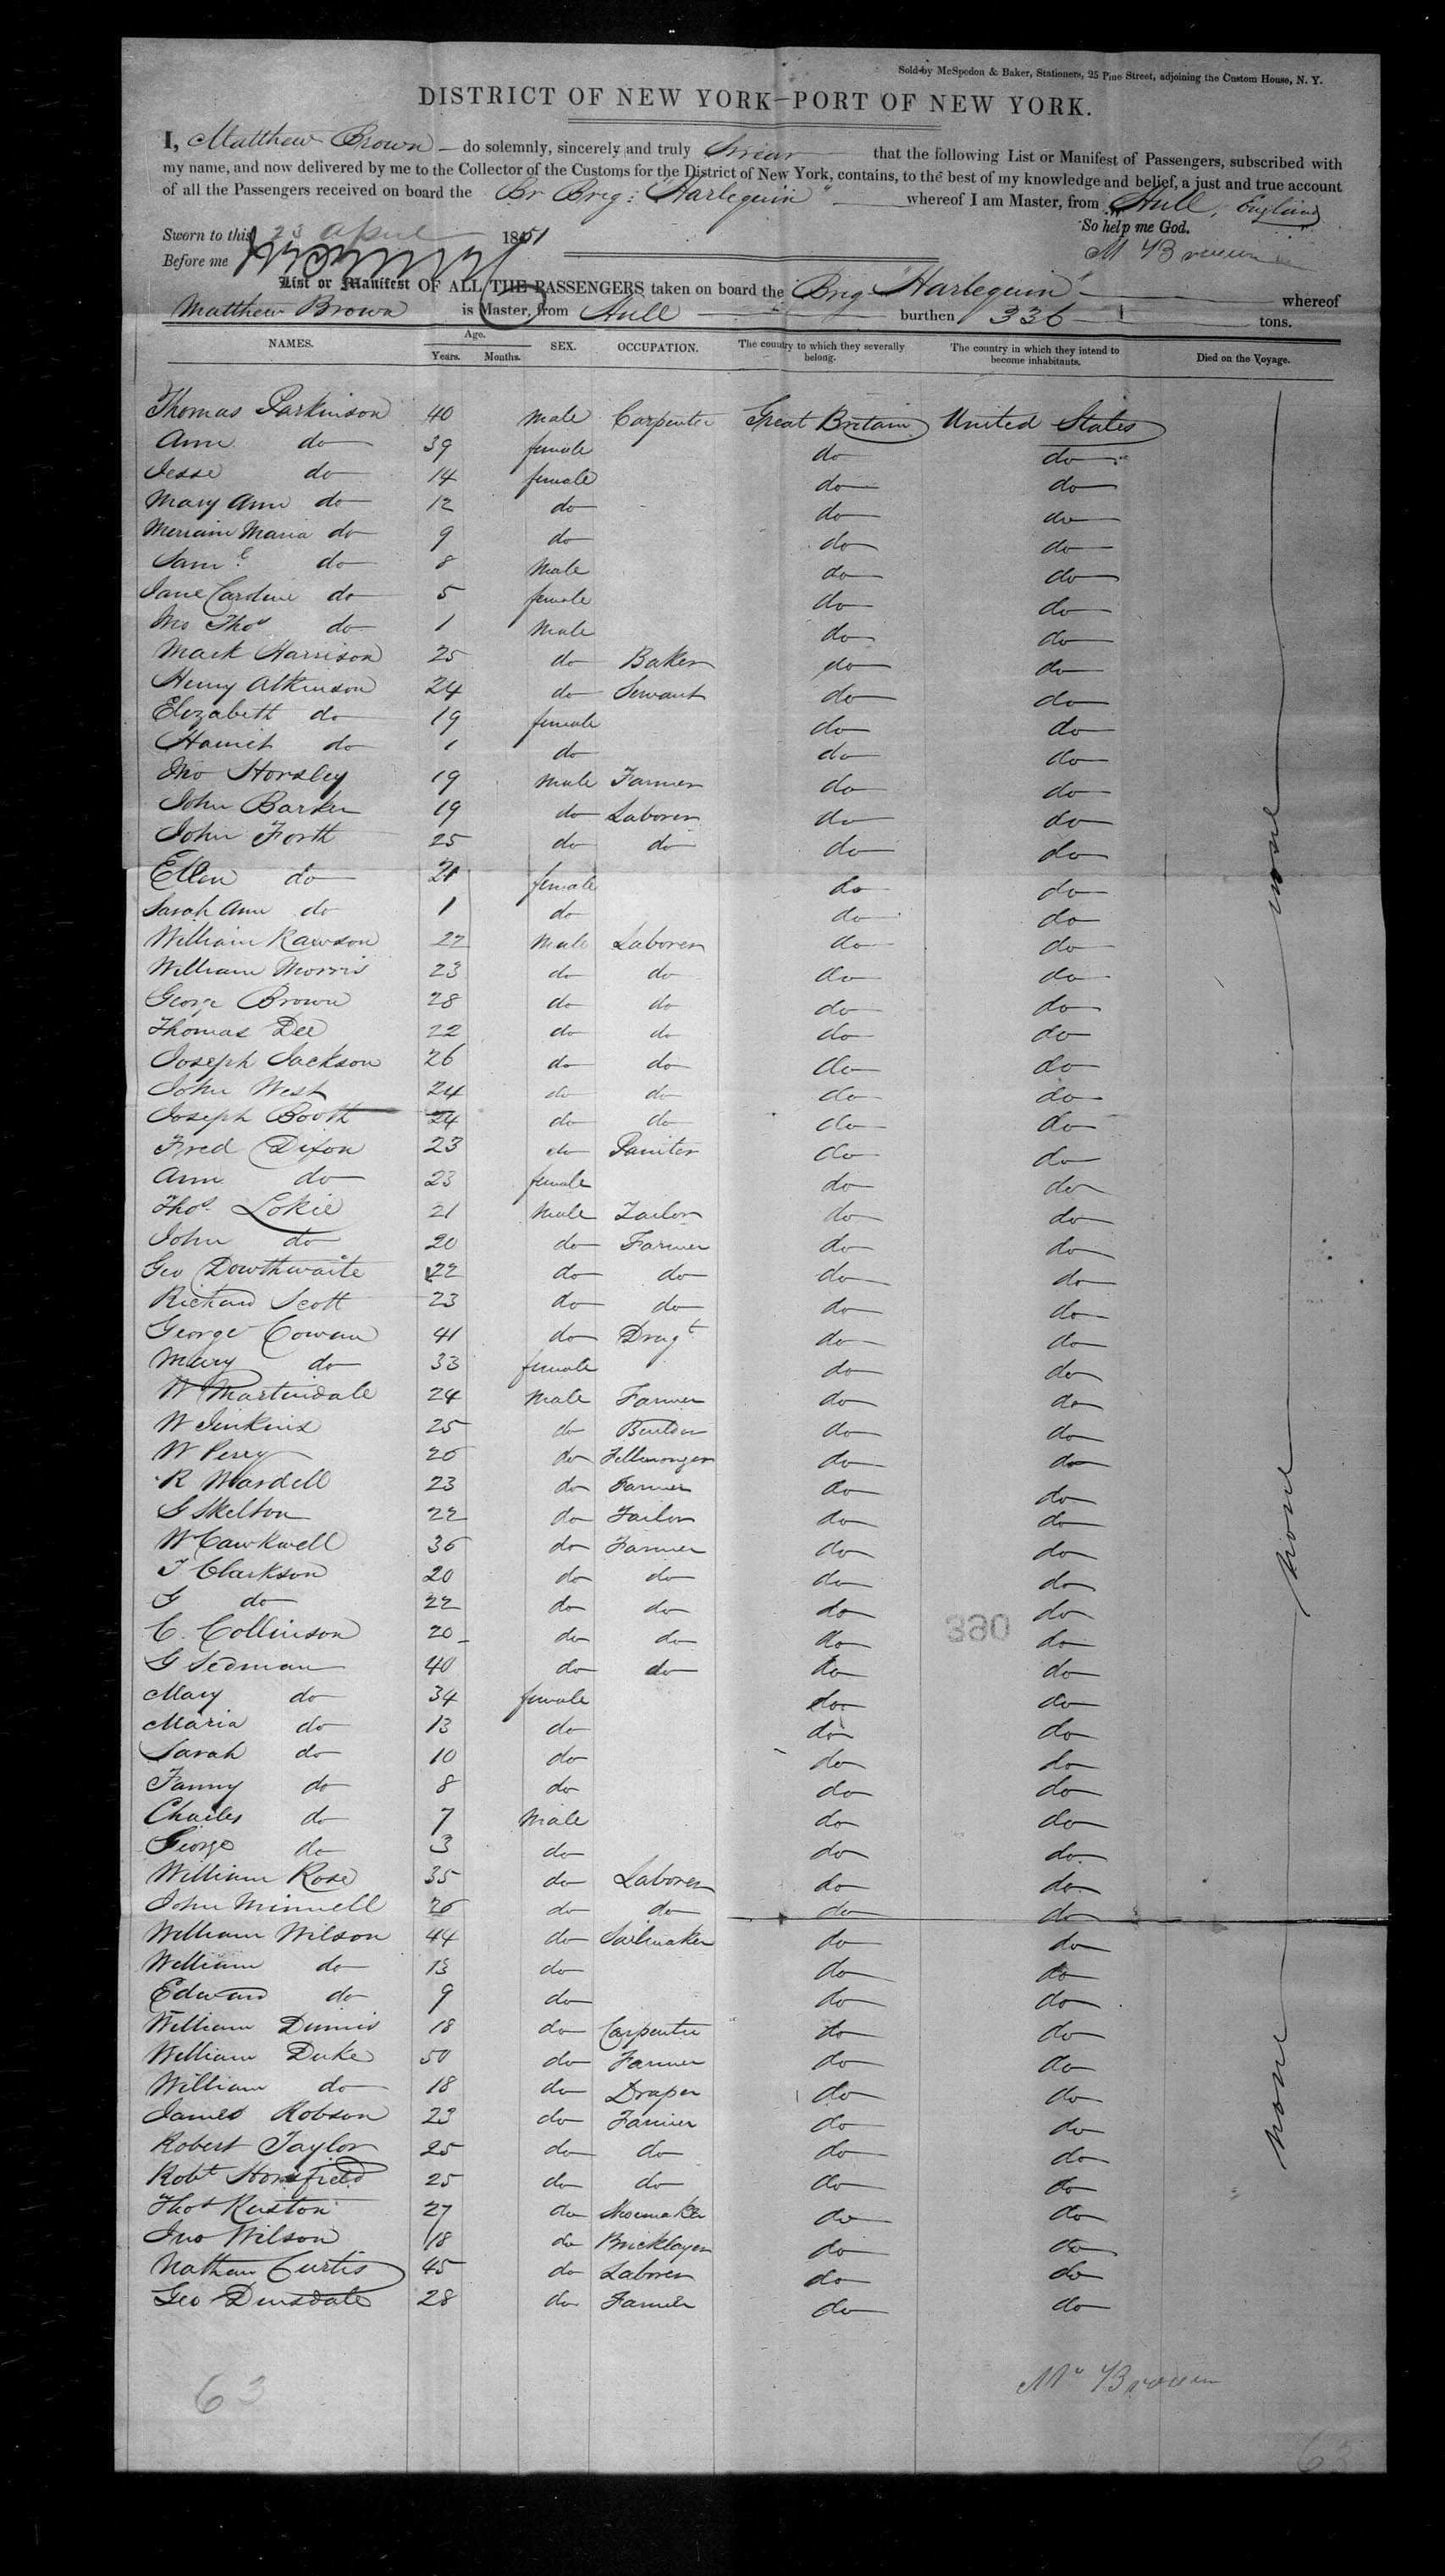 Sold by McSpedon & Baker, Stationers, 25 Pine Street, adjoining the Custom House, N. Y.
DISTRICT OF NEW YORK—PORT OF NEW YORK.
I, Matthew Brown do solemnly, sincerely and truly Swear that the following List or Manifest of Passengers, subscribed with
my name, and now delivered by me to the Collector of the Customs for the District of New York, contains, to the best of my knowledge and belief, a just and true account
of all the Passengers received on board the Br Brig: "Harlequin" whereof I am Master, from Hull, England
Sworn to this 23 April 1851 So help me God.
Before me M Brown
List or Manifest OF ALL THE PASSENGERS taken on board the Brig "Harlequin" whereof
Matthew Brown is Master, from Hull burthen 336 tons.
NAMES. Age. Years. Months. SEX. OCCUPATION. The country to which they severally belong. The country in which they intend to become inhabitants. Died on the Voyage.
Thomas Parkinson 40 Male Carpenter Great Britain United States
Ann do 39 female do do
Jesse do 14 female do do
Mary Ann do 12 do do do
Merriam Maria do 9 do do do
Saml do 8 Male do do
Jane Caroline do 5 female do do
Jno Thos do 1 Male do do
Mark Harrison 25 do Baker do do
Henry Atkinson 24 do Servant do do
Elizabeth do 19 female do do
Harriet do 1 do do do
Jno Horsley 19 Male Farmer do do
John Barker 19 do Laborer do do
John Forth 25 do do do do
Ellen do 21 female do do
Sarah Ann do 1 do do do
William Rawson 22 Male Laborer do do
William Morris 23 do do do do
George Brown 28 do do do do
Thomas Dee 22 do do do do
Joseph Jackson 26 do do do do
John West 24 do do do do
Joseph Booth 24 do do do do
Fred Dixon 23 do Painter do do
Ann do 23 female do do
Thos. Lokie 21 Male Tailor do do
John do 20 do Farmer do do
Geo Dowthwaite 22 do do do do
Richard Scott 23 do do do do
George Cowan 41 do Drugt do do
Mary do 33 female do do
W Martindale 24 Male Farmer do do
W Jenkins 25 do do do
W Perey 26 do Fellmonger do do
R Wardell 23 do Farmer do do
G Skelton 22 do Tailor do do
W Cawkwell 36 do Farmer do do
T Clarkson 20 do do do do
G do 22 do do do do
C. Collinson 20 do do do do
G Sedman 40 do do do do
Mary do 34 female do do
Maria do 13 do do do
Sarah do 10 do do do
Fanny do 8 do do do
Charles do 7 Male do do
George do 3 do do do
William Rose 35 do Laborer do do
John Minnell 26 do do do do
William Wilson 44 do Sailmaker do do
William do 13 do do do
Edward do 9 do do do
William 18 do Carpenter do do
William Duke 50 do Farmer do do
William do 18 do Draper do do
James Robson 23 do Farmer do do
Robert Taylor 25 do do do do
Robt Horsfield 25 do do do do
Thos Ruston 27 do Shoemaker do do
Jno Wilson 18 do Bricklayer do do
Nathan Curtis 45 do Laborer do do
Geo Dinsdale 28 do Farmer do do
none
none
none
390
M. Brown
63
63